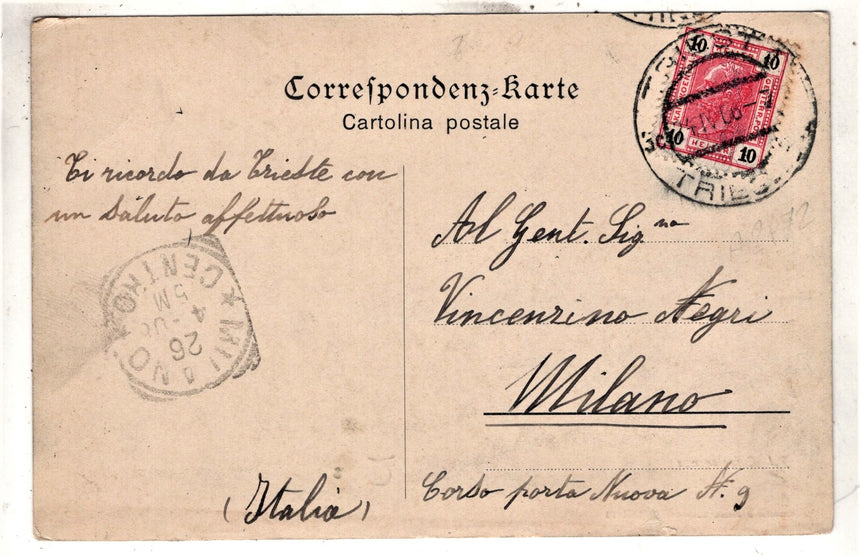 Correspondenz-Karte
Cartolina postale
10 10
HELLER
10 10
TRIES
Ti ricordo da Trieste con
un saluto affettuoso
MILANO
CENTRO
5M
26
Al Gent. Sig.no
Vincenzino Negri
Milano
Corso porta Nuova N. 9
(Italia)